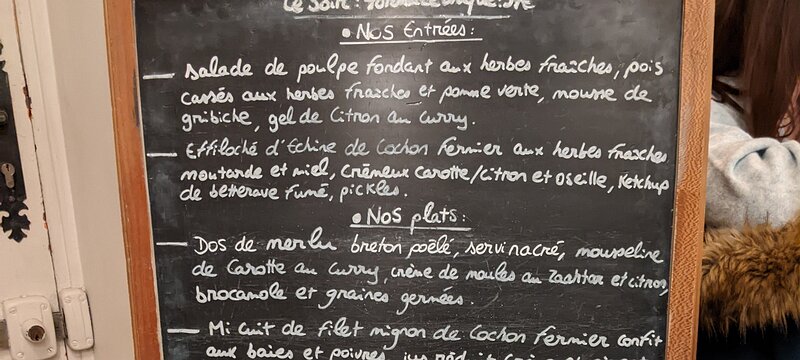 Le Soir :
• Nos Entrées :
— Salade de poulpe fondant aux herbes fraîches, pois
cassés aux herbes fraiches et pomme verte, mousse de
gribiche, gel de Citron au Curry.
— Effiloché d'Echine de Cochon Fermier aux herbes fraiches
moutarde et miel, Crémeux carotte/citron et Oseille, Ketchup
de betterave fumé, pickles.
• Nos plats :
— Dos de merlu breton poêlé, servi nacré, mousseline
de Carotte au Curry, crème de moules au Zaahtar et citron,
brocanole et graines germées.
— Mi cuit de filet mignon de Cochon Fermier confit
aux baies et poivres, jus